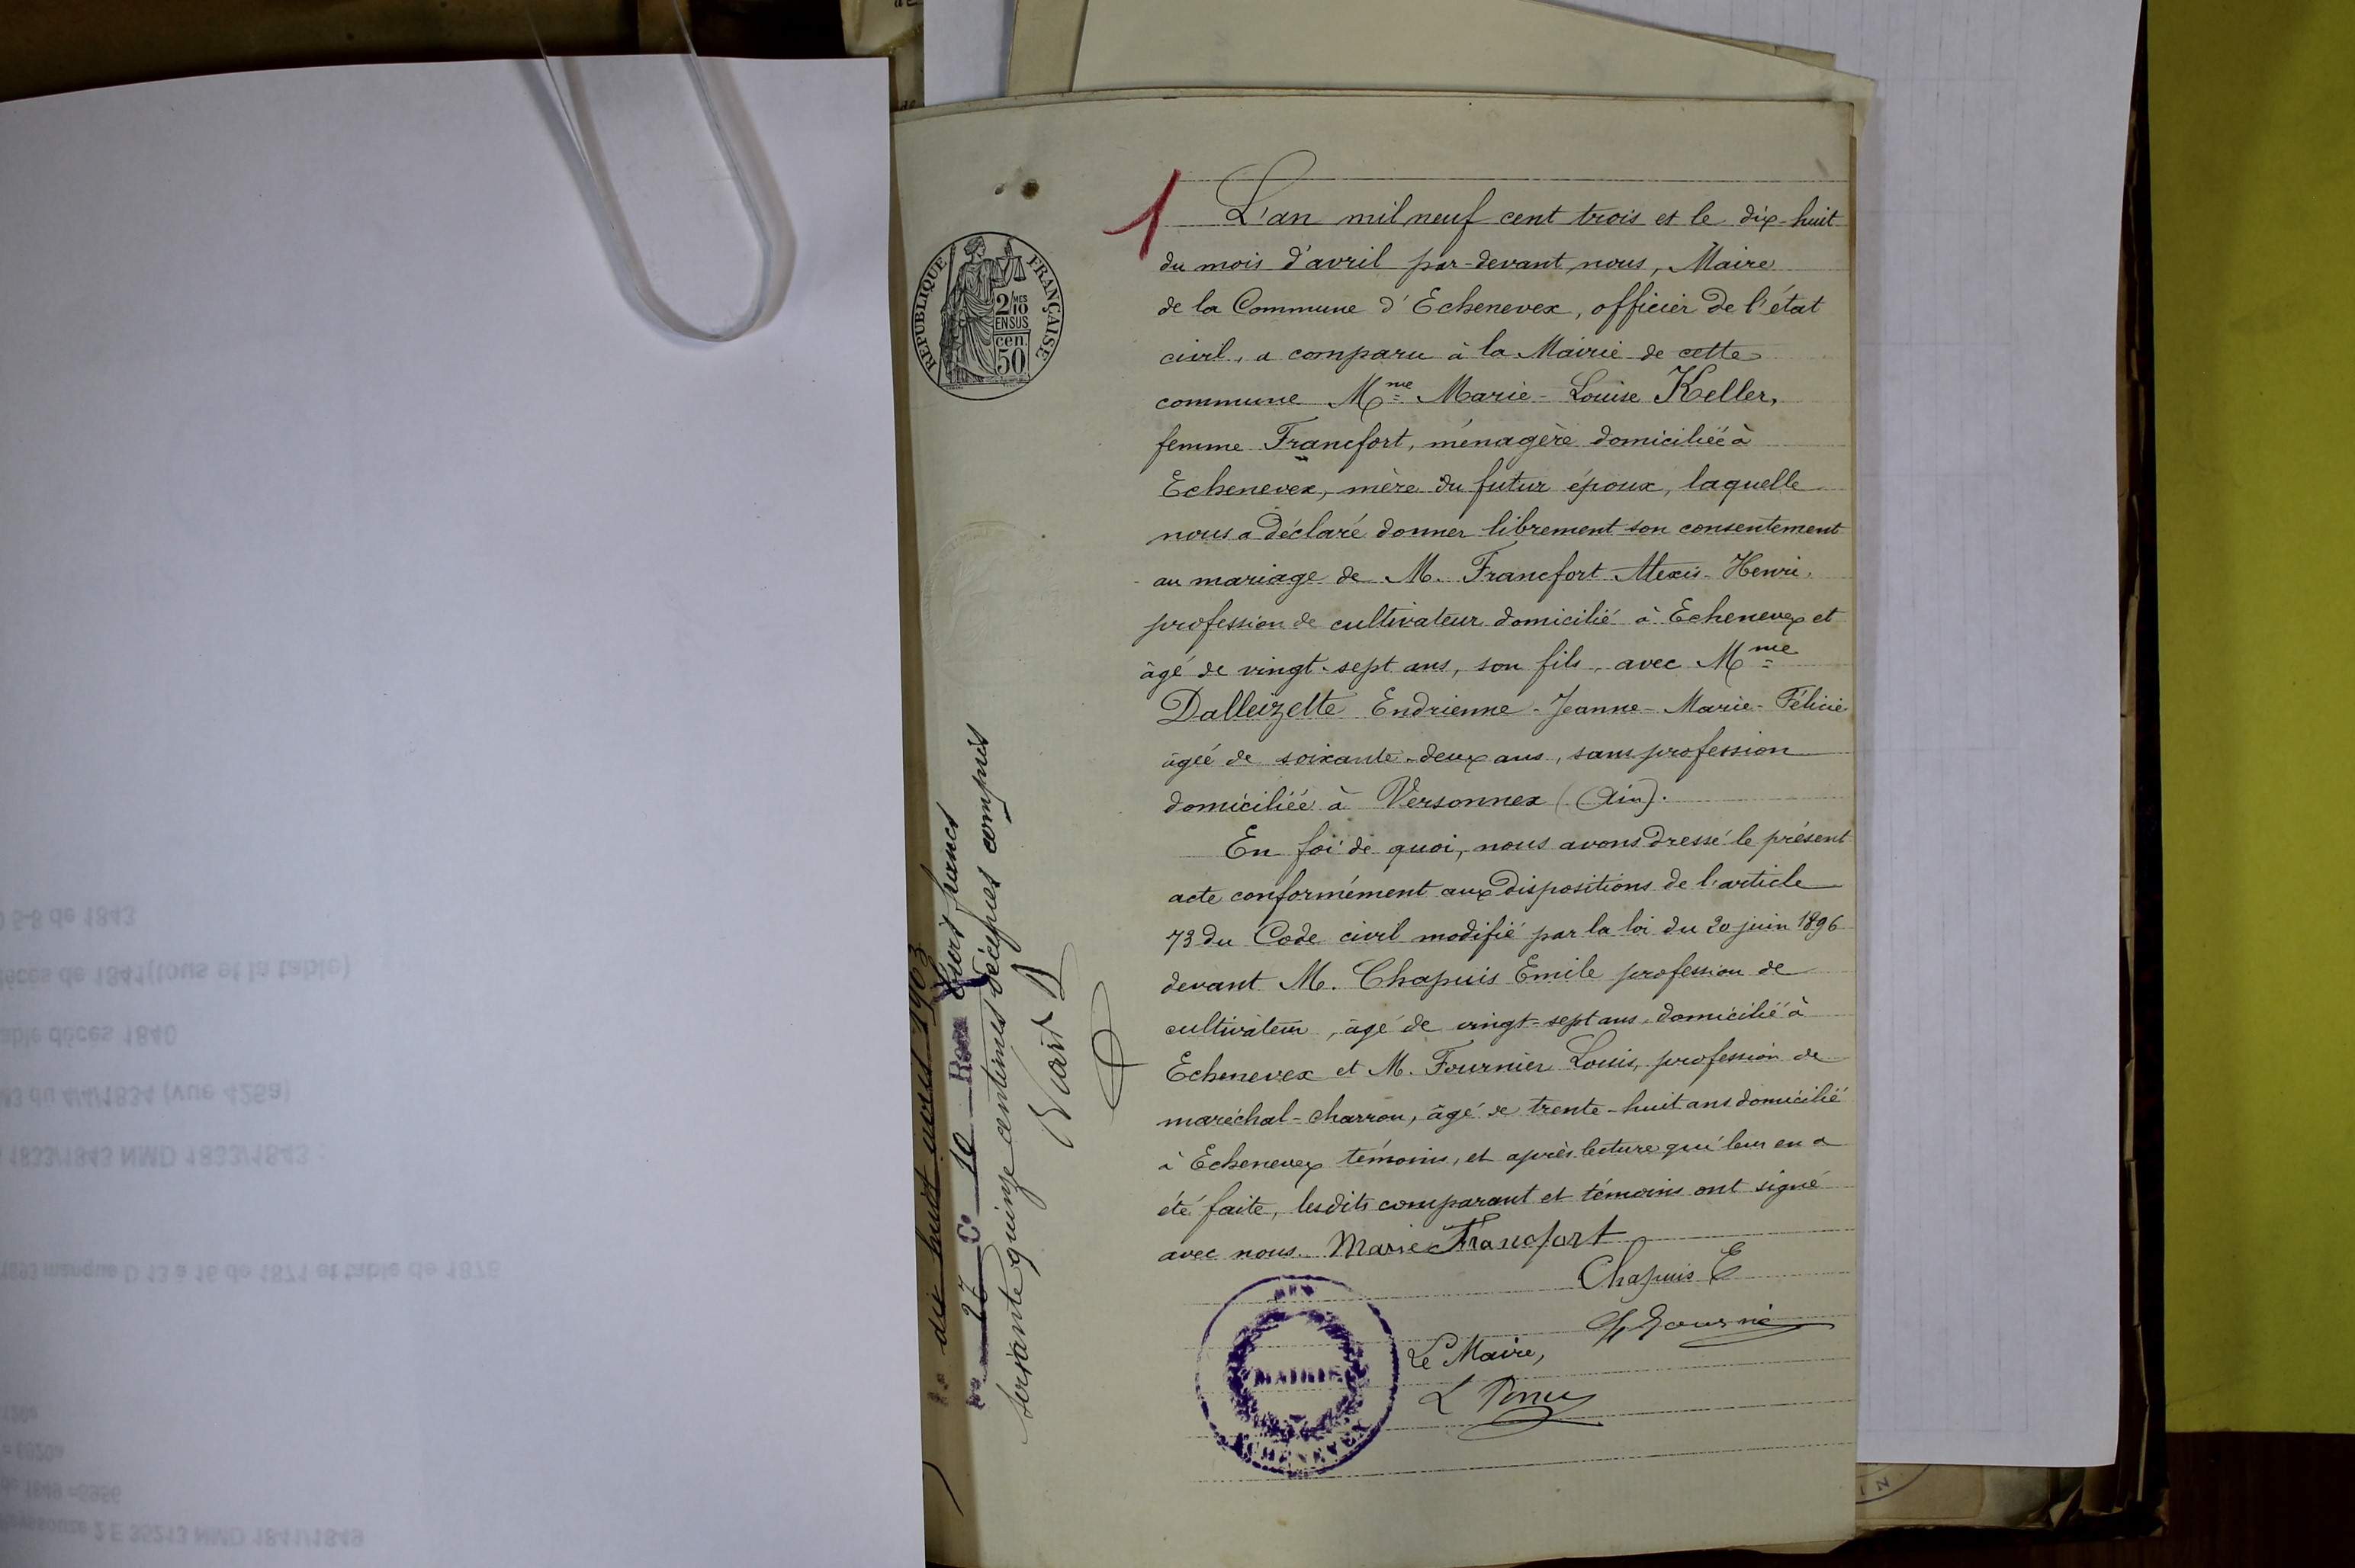 1
L'an mil neuf cent trois et le dix-huit
du mois d'avril par-devant nous, Maire
de la Commune d'Echenevex, officier de l'état
civil, a comparu à la Mairie de cette
commune Mme Marie-Louise Keller,
femme Francfort, ménagère domiciliée à
Echenevex, mère du futur époux, laquelle
nous a déclaré donner librement son consentement
au mariage de M. Francfort Alexis-Henri,
profession de cultivateur domicilié à Echenevex et
âgé de vingt-sept ans, son fils, avec Mme
Dalleizette Endrienne-Jeanne-Marie-Félicie
âgée de soixante-deux ans, sans profession
domiciliée à Versonnex (Ain).
En foi de quoi, nous avons dressé le présent
acte conformément aux dispositions de l'article
73 du Code civil modifié par la loi du 20 juin 1896
devant M. Chapuis Emile profession de
cultivateur, âgé de vingt-sept ans, domicilié à
Echenevex et M. Fournier Louis, profession de
maréchal-charron, âgé de trente-huit ans domicilié
à Echenevex témoins, et après lecture qui leur en a
été faite, lesdits comparant et témoins ont signé
avec nous. Marie Francfort
Chapuis E
Le Maire,
MAIRIE
ECHENEVEX
REPUBLIQUE FRANÇAISE
2/10MES
EN SUS
cen.
50
dix huit avril 1903
27 C° 10 Reçu trois francs
soixante quinze centimes décimes compris
5-8 de 1843
décès de 1841(tous et la table)
table décès 1840
M3 du 4/4/1834 (vue 425a)
1833/1843 NMD 1833/1843 :
1893 manque D 13 a 16 de 1871 et table de 1876
= 6920a
de 1849 =5956
2 E 35213 NMD 1841/1849
IN